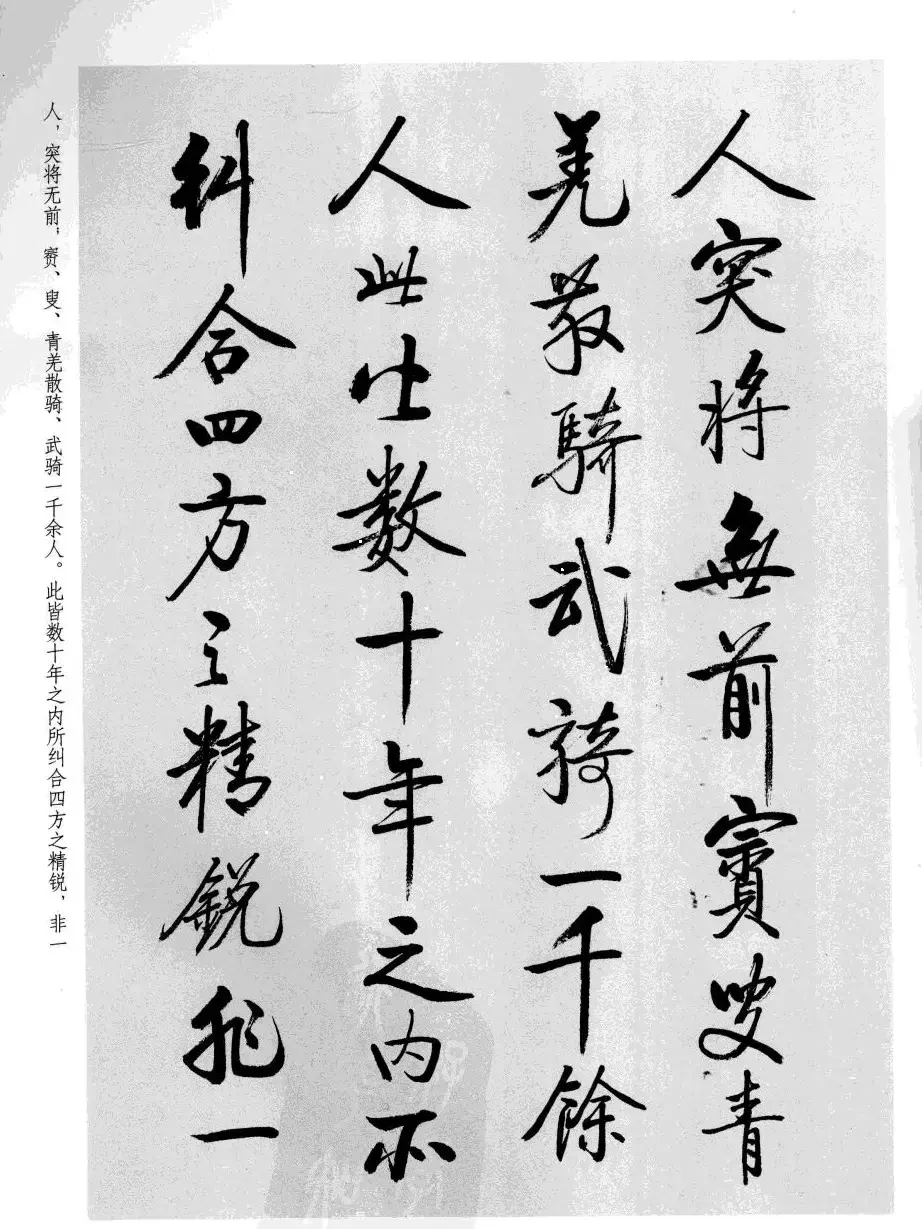 人突将無前賨叟青
羌散騎武騎一千餘
人此皆数十年之内所
糾合四方之精鋭非一
人，突将无前；賨、叟、青羌散骑、武骑一千余人。此皆数十年之内所纠合四方之精锐，非一